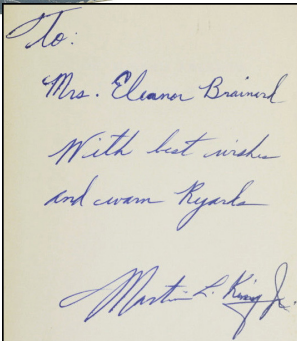 To:
Mrs. Eleanor Brainerd
With best wishes
and warm Regards
Martin L. King Jr.